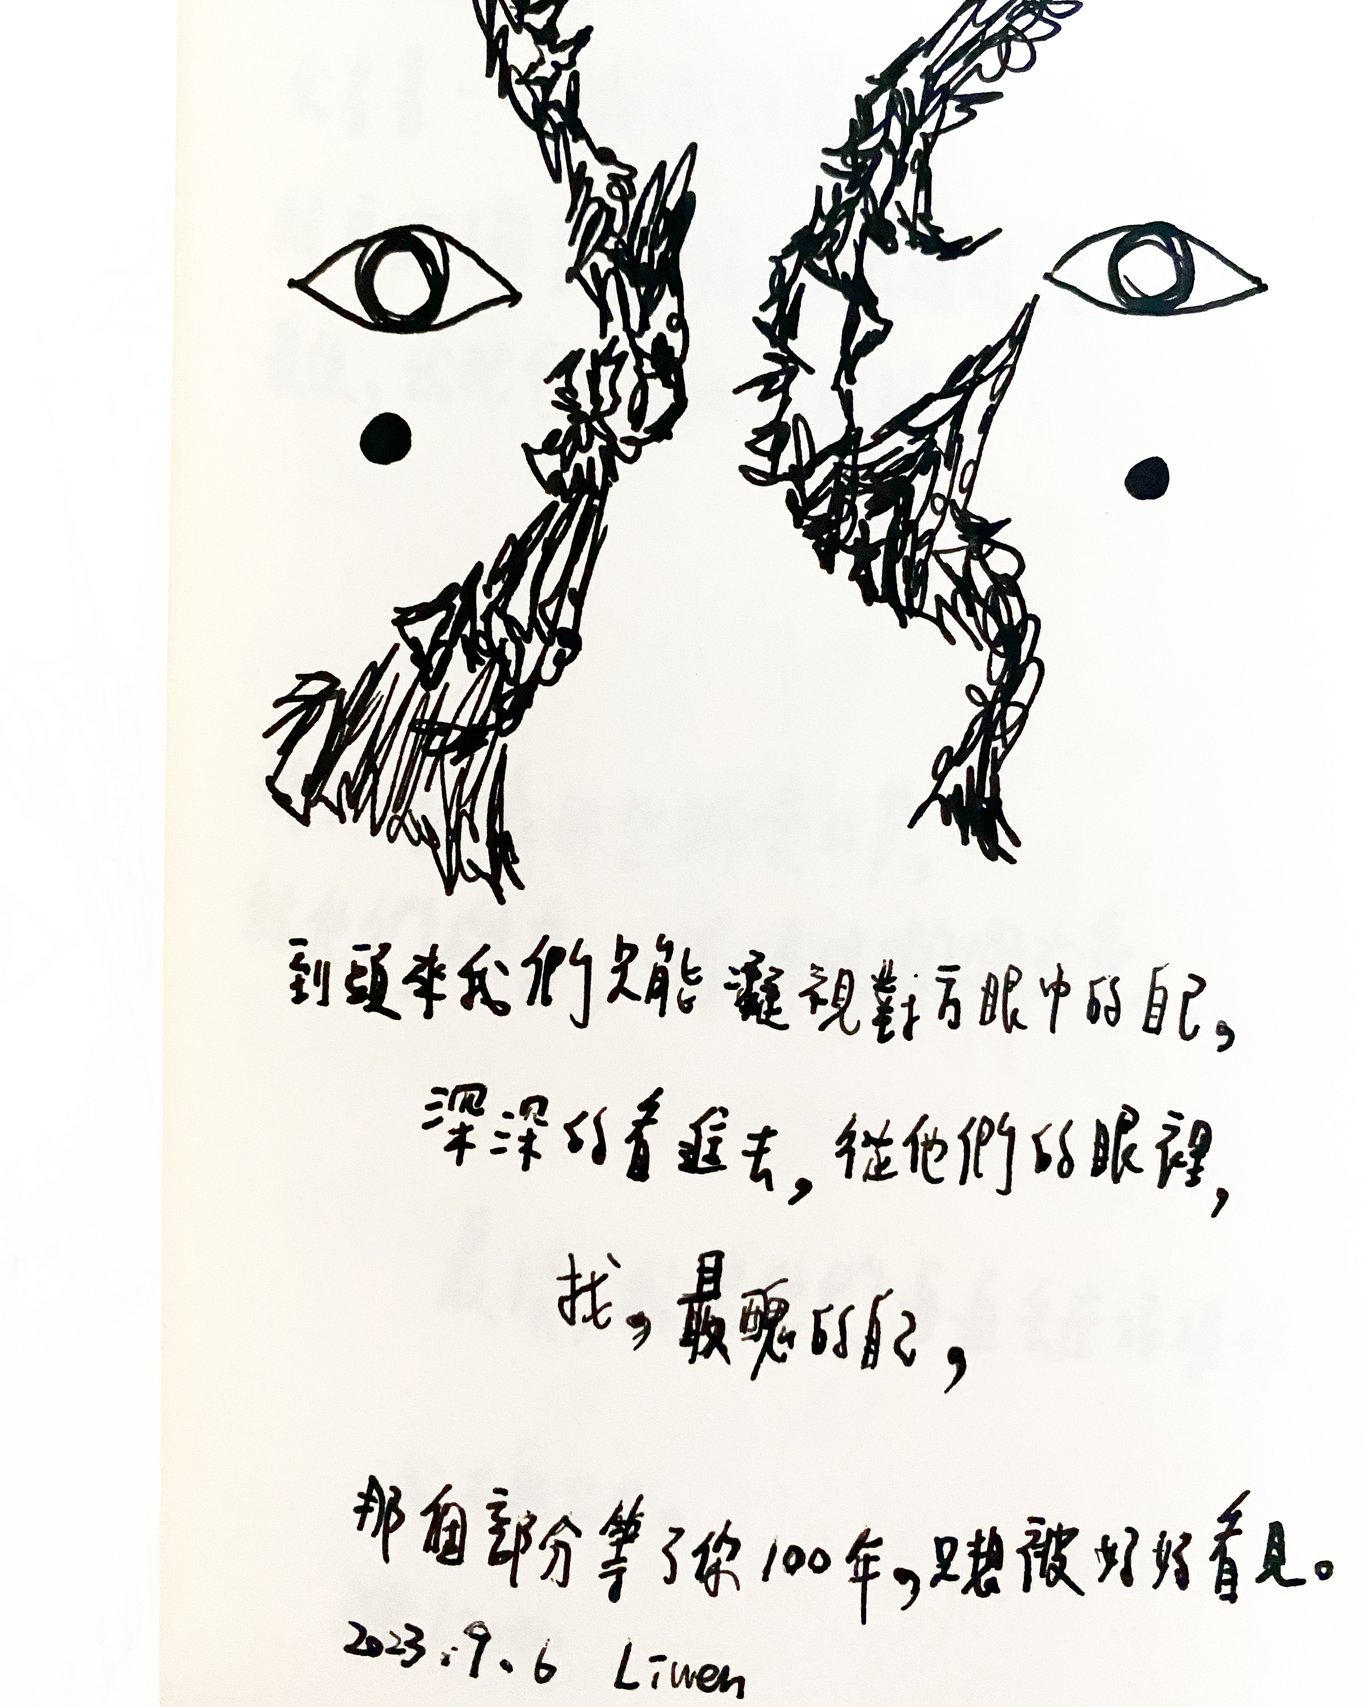 到頭來我們只能凝視對方眼中的自己,
深深的看進去,從他們的眼裡,
找,最醜的自己,
那個部分等了你100年,只想被好好看見。
2023.9.6 Liwen